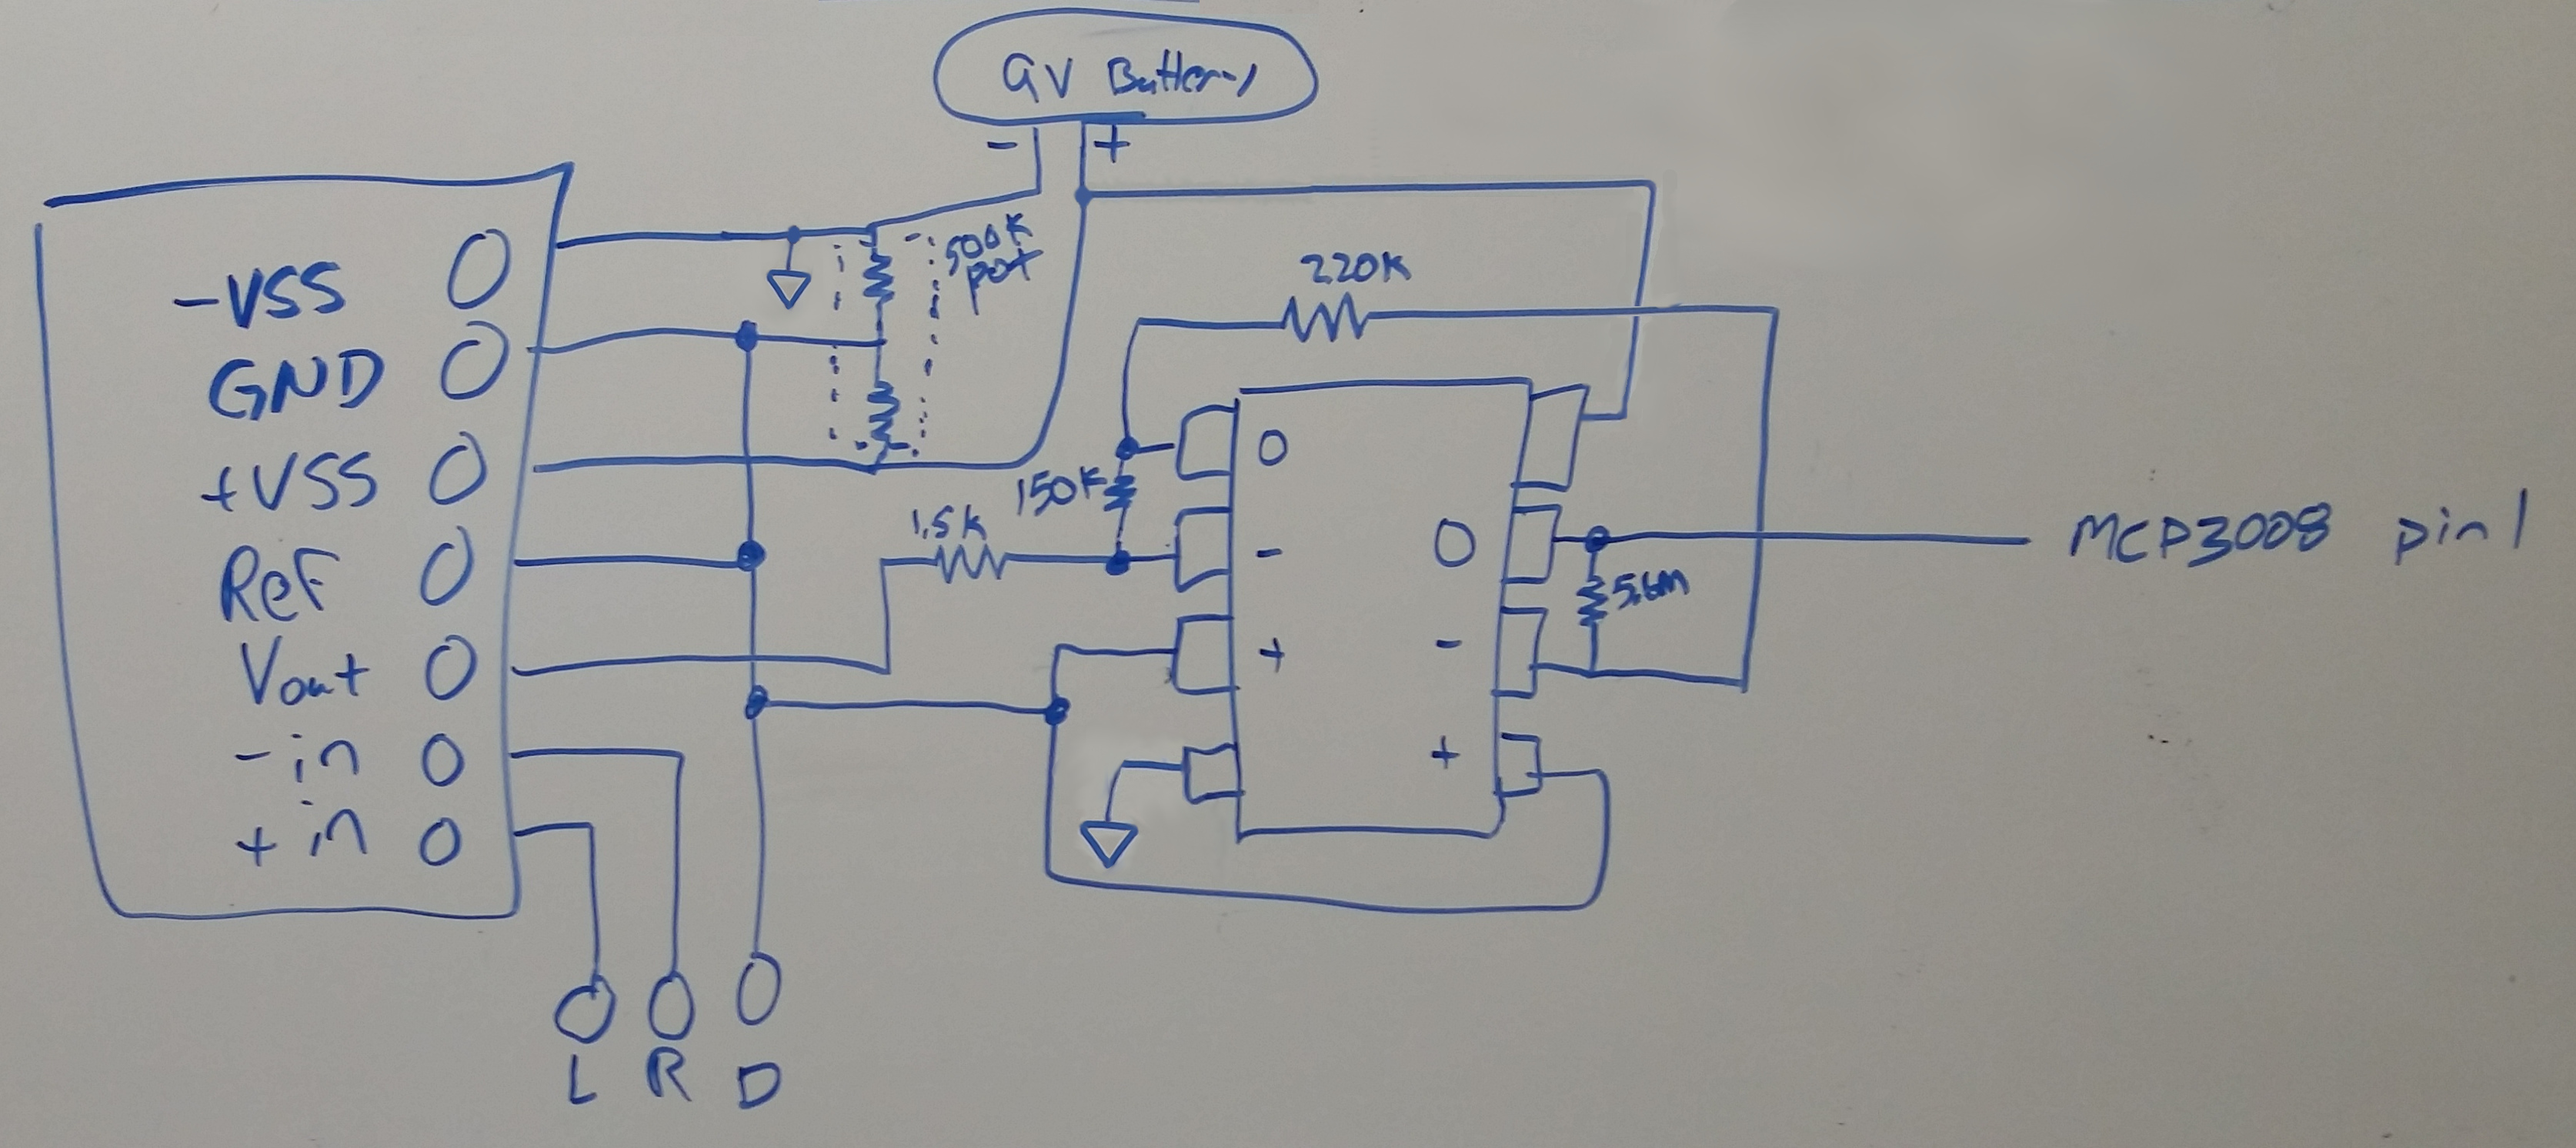 9V Battery
- +
-VSS
GND
+VSS
Ref
Vout
-in
+in
500K
pot
220K
150K
1.5K
O
-
+
O
-
+
5.6M
MCP3008 pin 1
L R D